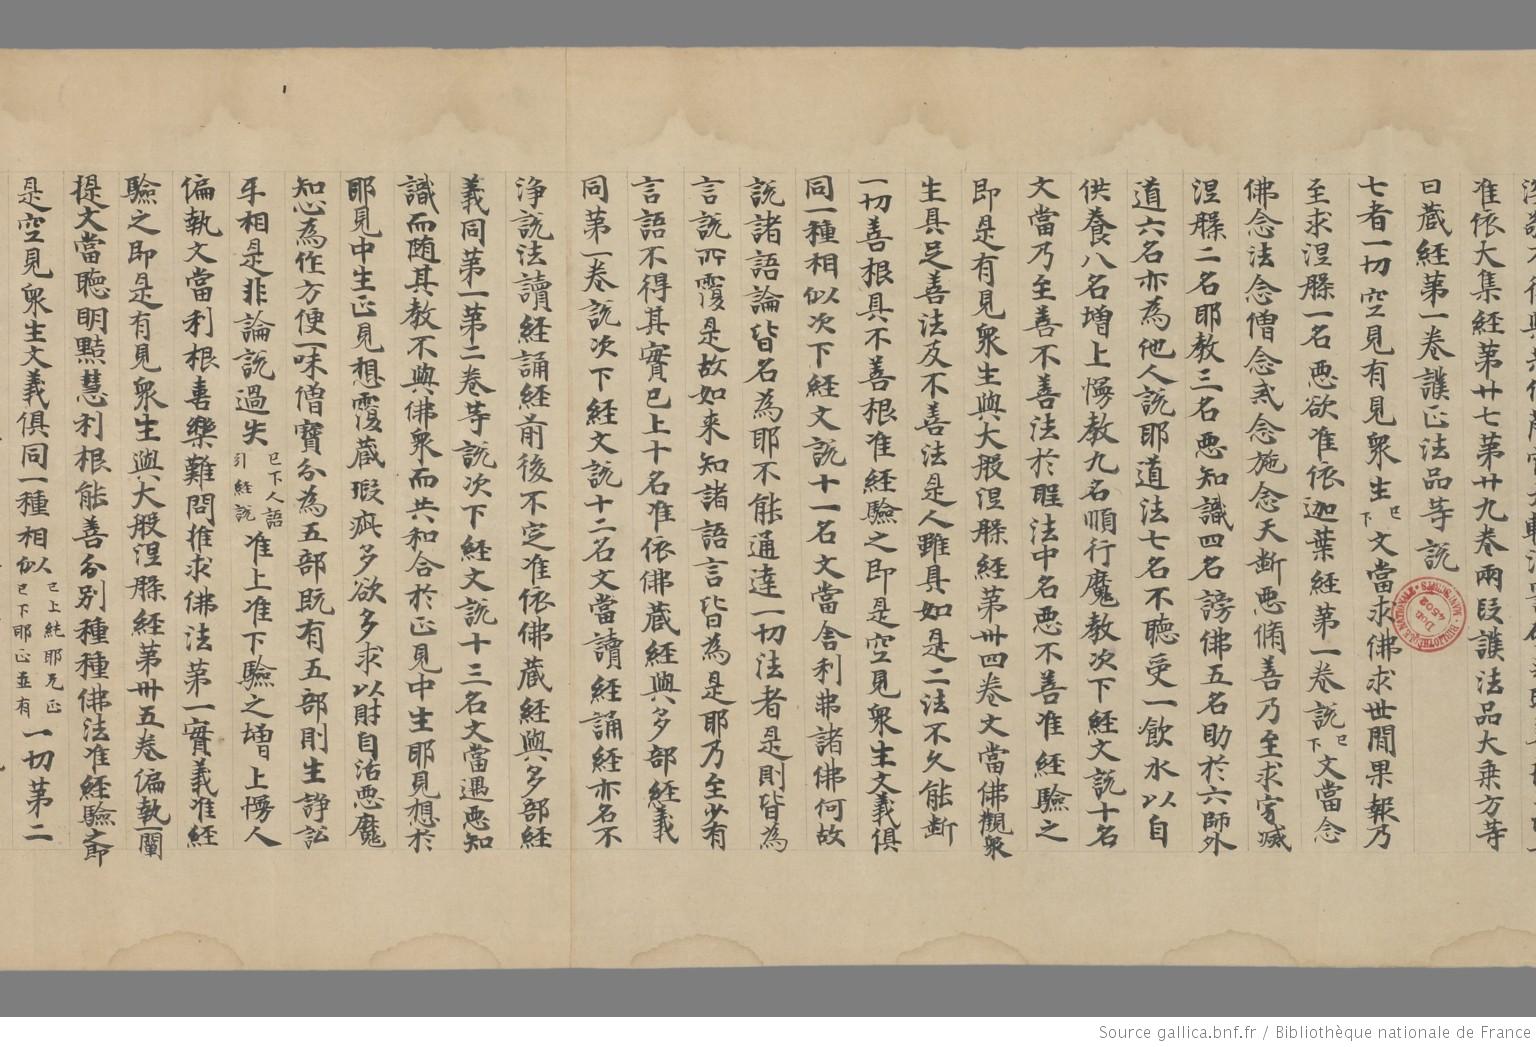 准依大集経第卅七第卅九卷兩段護法品大乗方等
日蔵経第一卷護正法品等説
七者一切空見有見衆生已下文當求佛求世間果報乃
至求涅槃一名悪欲准依迦葉経第一卷説已下文當念
佛念法念僧念戒念施念天断悪脩善乃至求寂滅
涅槃二名耶教三名悪知識四名謗佛五名助於六師外
道六名亦為他人説耶道法七名不聴受一飲水以自
供養八名増上慢教九名順行魔教次下経文説十名
文當乃至善不善法於聖法中名悪不善准経驗之
即是有見衆生與大般涅槃経第卅四卷文當佛觀衆
生具足善法及不善法是人雖具如是二法不久能断
一切善根具不善根准経驗之即是空見衆生文義俱
同一種相似次下経文説十一名文當舎利弗諸佛何故
説諸語論皆名為耶不能通達一切法者是則皆為
言説所覆是故如来知諸語言皆為是耶乃至少有
言語不得其實已上十名准依佛蔵経與多部経義
同第一卷説次下経文説十二名文當讀経誦経亦名不
浄説法讀経誦経前後不定准依佛蔵経與多部経
義同第一第二卷等説次下経文説十三名文當遇悪知
識而随其教不與佛衆而共和合於正見中生耶見想於
耶見中生正見想覆蔵瑕疵多欲多求以財自活悪魔
知心為作方便一味僧寶分為五部既有五部則生諍訟
乎相是非論説過失已下人語引経説准上准下驗之増上慢人
偏執文當利根喜樂難問推求佛法第一實義准経
驗之即是有見衆生與大般涅槃経第卅五卷偏執一闡
提文當聴明黠慧利根能善分別種種佛法准経驗之即
是空見衆生文義俱同一種相似已上純耶无正已下耶正並有一切第二
Source gallica.bnf.fr / Bibliothèque nationale de France